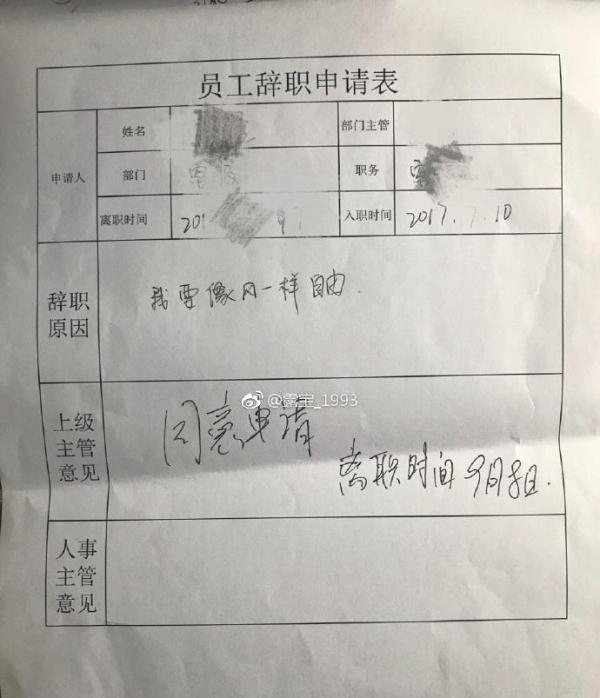 员工辞职申请表
姓名
部门主管
申请人
部门
职务
离职时间 201
入职时间 2017.7.10
辞职
原因
我要像风一样自由.
@霭宝_1993
上级
主管
意见
同意申请
离职时间 9月8日.
人事
主管
意见